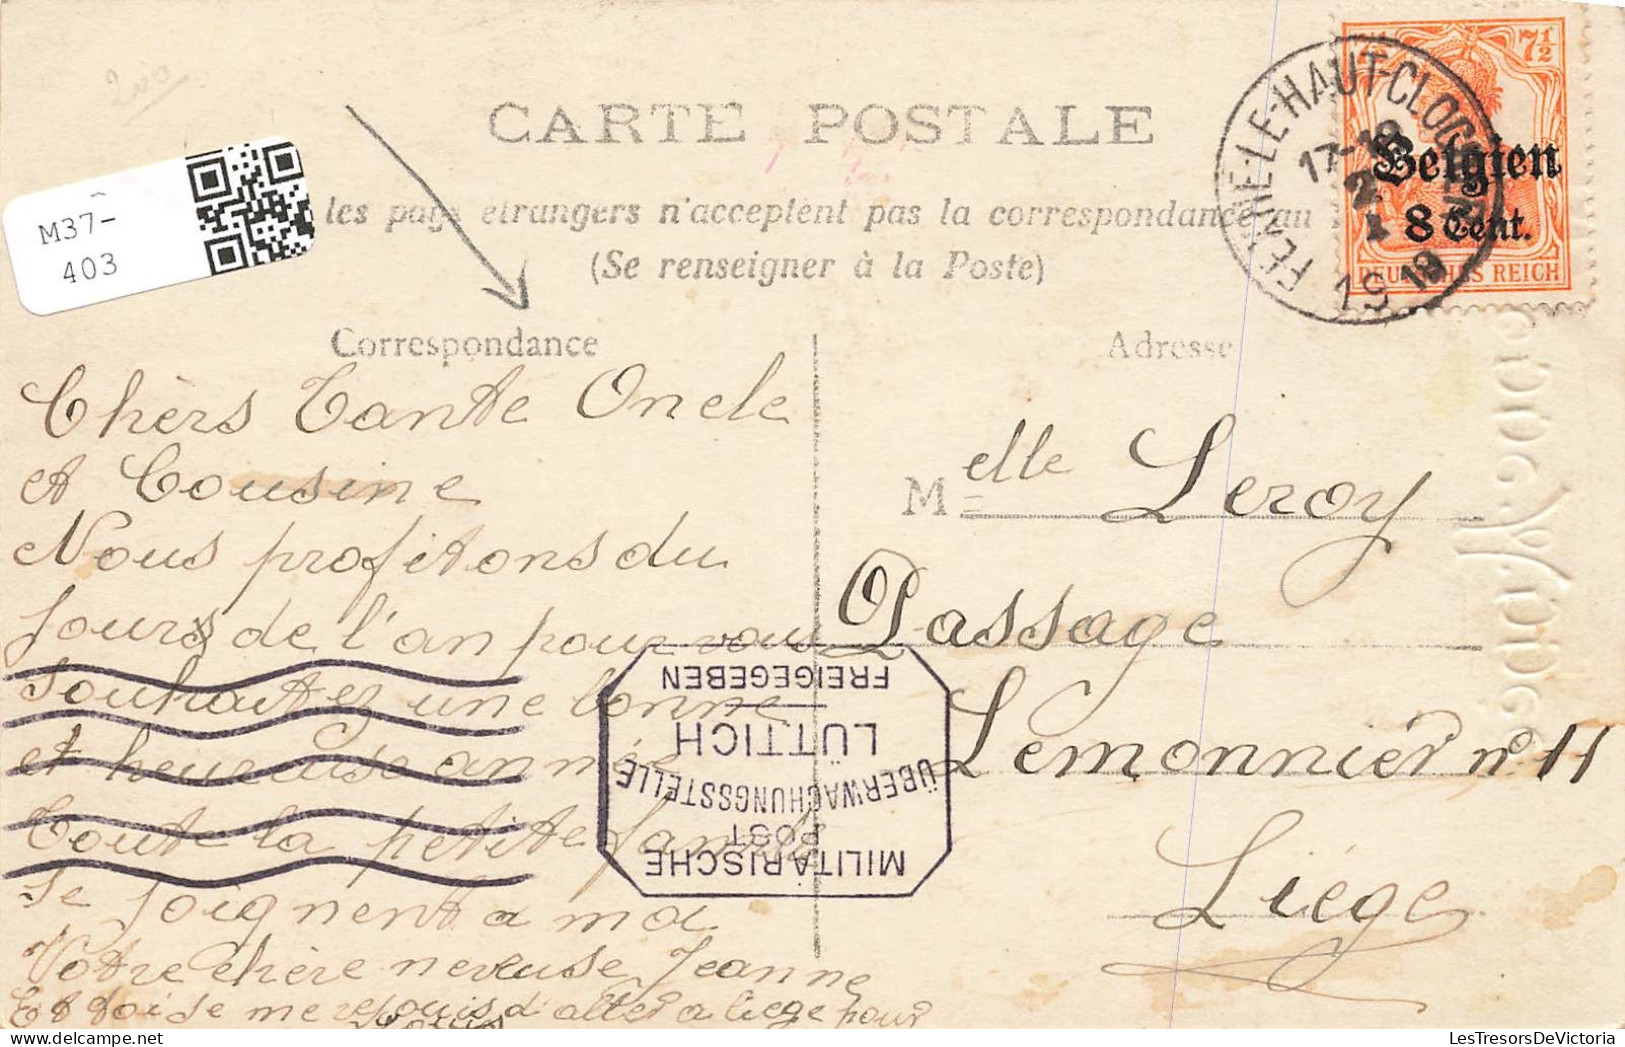 CARTE POSTALE
les pays étrangers n'acceptent pas la correspondance au
(Se renseigner à la Poste)
M37-
403
7½
7½
Belgien
8 Cent.
DEUTSCHES REICH
FEXHE-LE-HAUT-CLOCHER
17-18
2
1
19 19
Correspondance
Chèrs Tante Oncle
et Cousine
Nous profitons du
jours de l'an pour vous
souhaitez une bonne
et heureuse année
Toute la petite famille
se joignent a moi
Votre chère neveuse Jeanne
me rejouis d'aller a liege pour
Adresse
Melle Leroy
Passage
Lemonnier n° 11
Liége
MILITÄRISCHE
POST
ÜBERWACHUNGSSTELLE
LÜTTICH
FREIGEGEBEN
LesTresorsDeVictoria